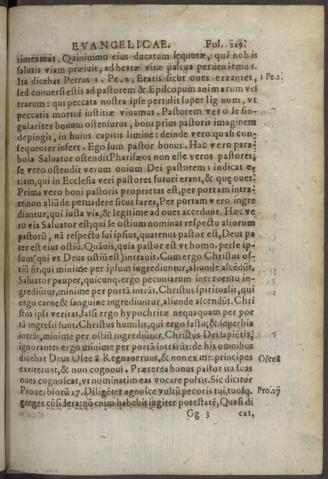 EVANGELICAE. Fol. 229.
timeamus. Quinimmo eius ducatum sequutæ, qui nobis
salutis viam præiuit, ad beatæ vitæ pascua perueniemus.
Ita dicebat Petrus 1. Pe. 2. Eratis sicut oues errantes, 1 Pe.2.
sed conuersi estis ad pastorem & Episcopum animarum ves
trarum: qui peccata nostra ipse pertulit super lignum, vt
peccatis mortui iustitiæ viuamus. Pastorem vero se sin-
gulariter bonum ostensurus, boni prius pastoris imaginem
depingit, in huius capitis limine: deinde vero quasi con-
sequenter infert. Ego sum pastor bonus. Hac vero para-
bola Saluator ostendit Pharisæos non esse veros pastores,
se vero ostendit verum ouium Dei pastorem: indicat e-
tiam, qui in Ecclesia veri pastores futuri erant, & que oues?
Prima vero boni pastoris proprietas est, per portam intra-
re non aliūde peruadere sicut fures, Per portam vero ingre
diuntur, qui iusta via, & legitime ad oues accedunt. Hæc ve
ro via Saluator est: qui se ostium nominat respectu aliorum
pastorū, nā respectu sui ipsius, quatenus pastor est, Deus pa
ter est eius ostiū. Quāuis, quia pastor est vt homo, per se ip-
sum (qui vt Deus ostiū est) intrauit. Cum ergo Christus os-
tiū sit, qui minime per ipsum ingrediuntur, aliunde ascēdūt.
Saluator pauper, quicunq; ergo pecuniarum interuentu in-
grediūtur, minime per portā intrāt. Christus spiritualis, qui
ergo carne & sanguine ingrediuntur, aliunde ascendūt. Chri
stus ipsa veritas, falsi ergo hypochritæ nequaquam per por
tā ingressi sunt. Christus humilis, qui ergo fastu, & superbia
intrāt, minime per ostiū ingrediuntur. Christus Dei sapiētia,
ignorantes ergo minime per portā intrarūt: de his omnibus
dicebat Deus Osee 8 Regnauerunt, & non ex me: principes Osee 8
extiterunt, & non cognoui. Præterea bonus pastor ita suas
oues cognoscat, vt nominatim eas vocare possit. Sic dicitur
Prouerbiorū 27. Diligēter agnosce vultū pecoris tui, tuosq; Pro.27
greges cōsidera: nō enim habebis iugiter potestatē, Quasi di
Gg 3 cat,